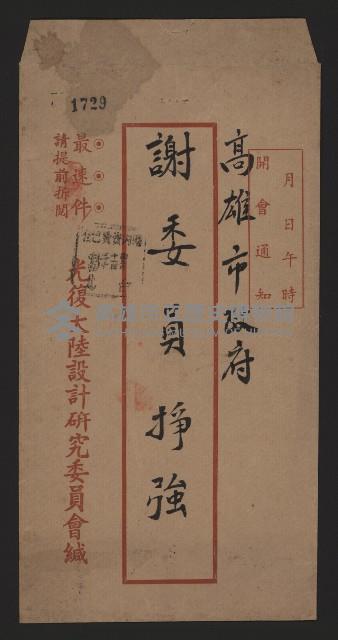 1729
開會通知
月日午時
高雄市政府
謝委員掙強
最速件
請提前拆閱
光復大陸設計研究委員會緘